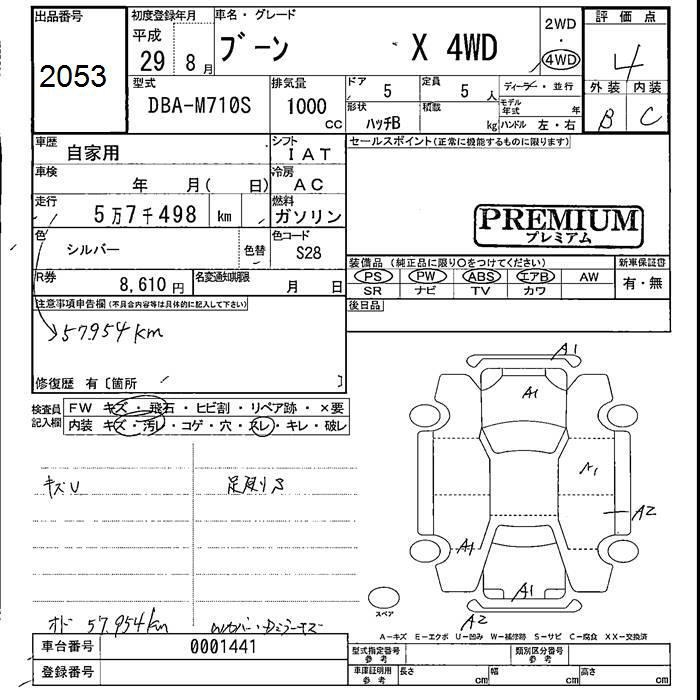 出品番号 2053
初度登録年月 平成 29 8月
車名・グレード ブーン X 4WD
2WD ・ 4WD
評価点 4
外装 内装
B C
型式 DBA-M710S
排気量 1000 cc
ドア 5
定員 5人
ディーラー・並行
形状 ハッチB
積載 kg
モデル年式 年
ハンドル 左・右
車歴 自家用
シフト IAT
セールスポイント(正常に機能するものに限ります)
車検 年 月( 日)
冷房 AC
走行 5万7千498 km
燃料 ガソリン
PREMIUM
プレミアム
色 シルバー
色替
色コード S28
装備品(純正品に限り○をつけてください)
新車保証書
PS PW ABS エアB AW
有・無
SR ナビ TV カワ
R券 8,610円
名変通知期限 月 日
後日品
注意事項申告欄(不具合内容等は具体的に記入して下さい)
57954km
修復歴 有〔箇所 〕
検査員記入欄
FW キズ・飛石・ヒビ割・リペア跡・×要
内装 キズ・汚レ・コゲ・穴・スレ・キレ・破レ
A1
A1
A1
A2
A1
A1
A2
キズU
足廻りS
スペア
オド 57,954km
A－キズ E－エクボ U－凹み W－補修跡 S－サビ C－腐食 XX－交換済
車台番号 0001441
型式指定番号 参考
類別区分番号 参考
登録番号
車庫証明用 参考
長さ cm
幅 cm
高さ cm